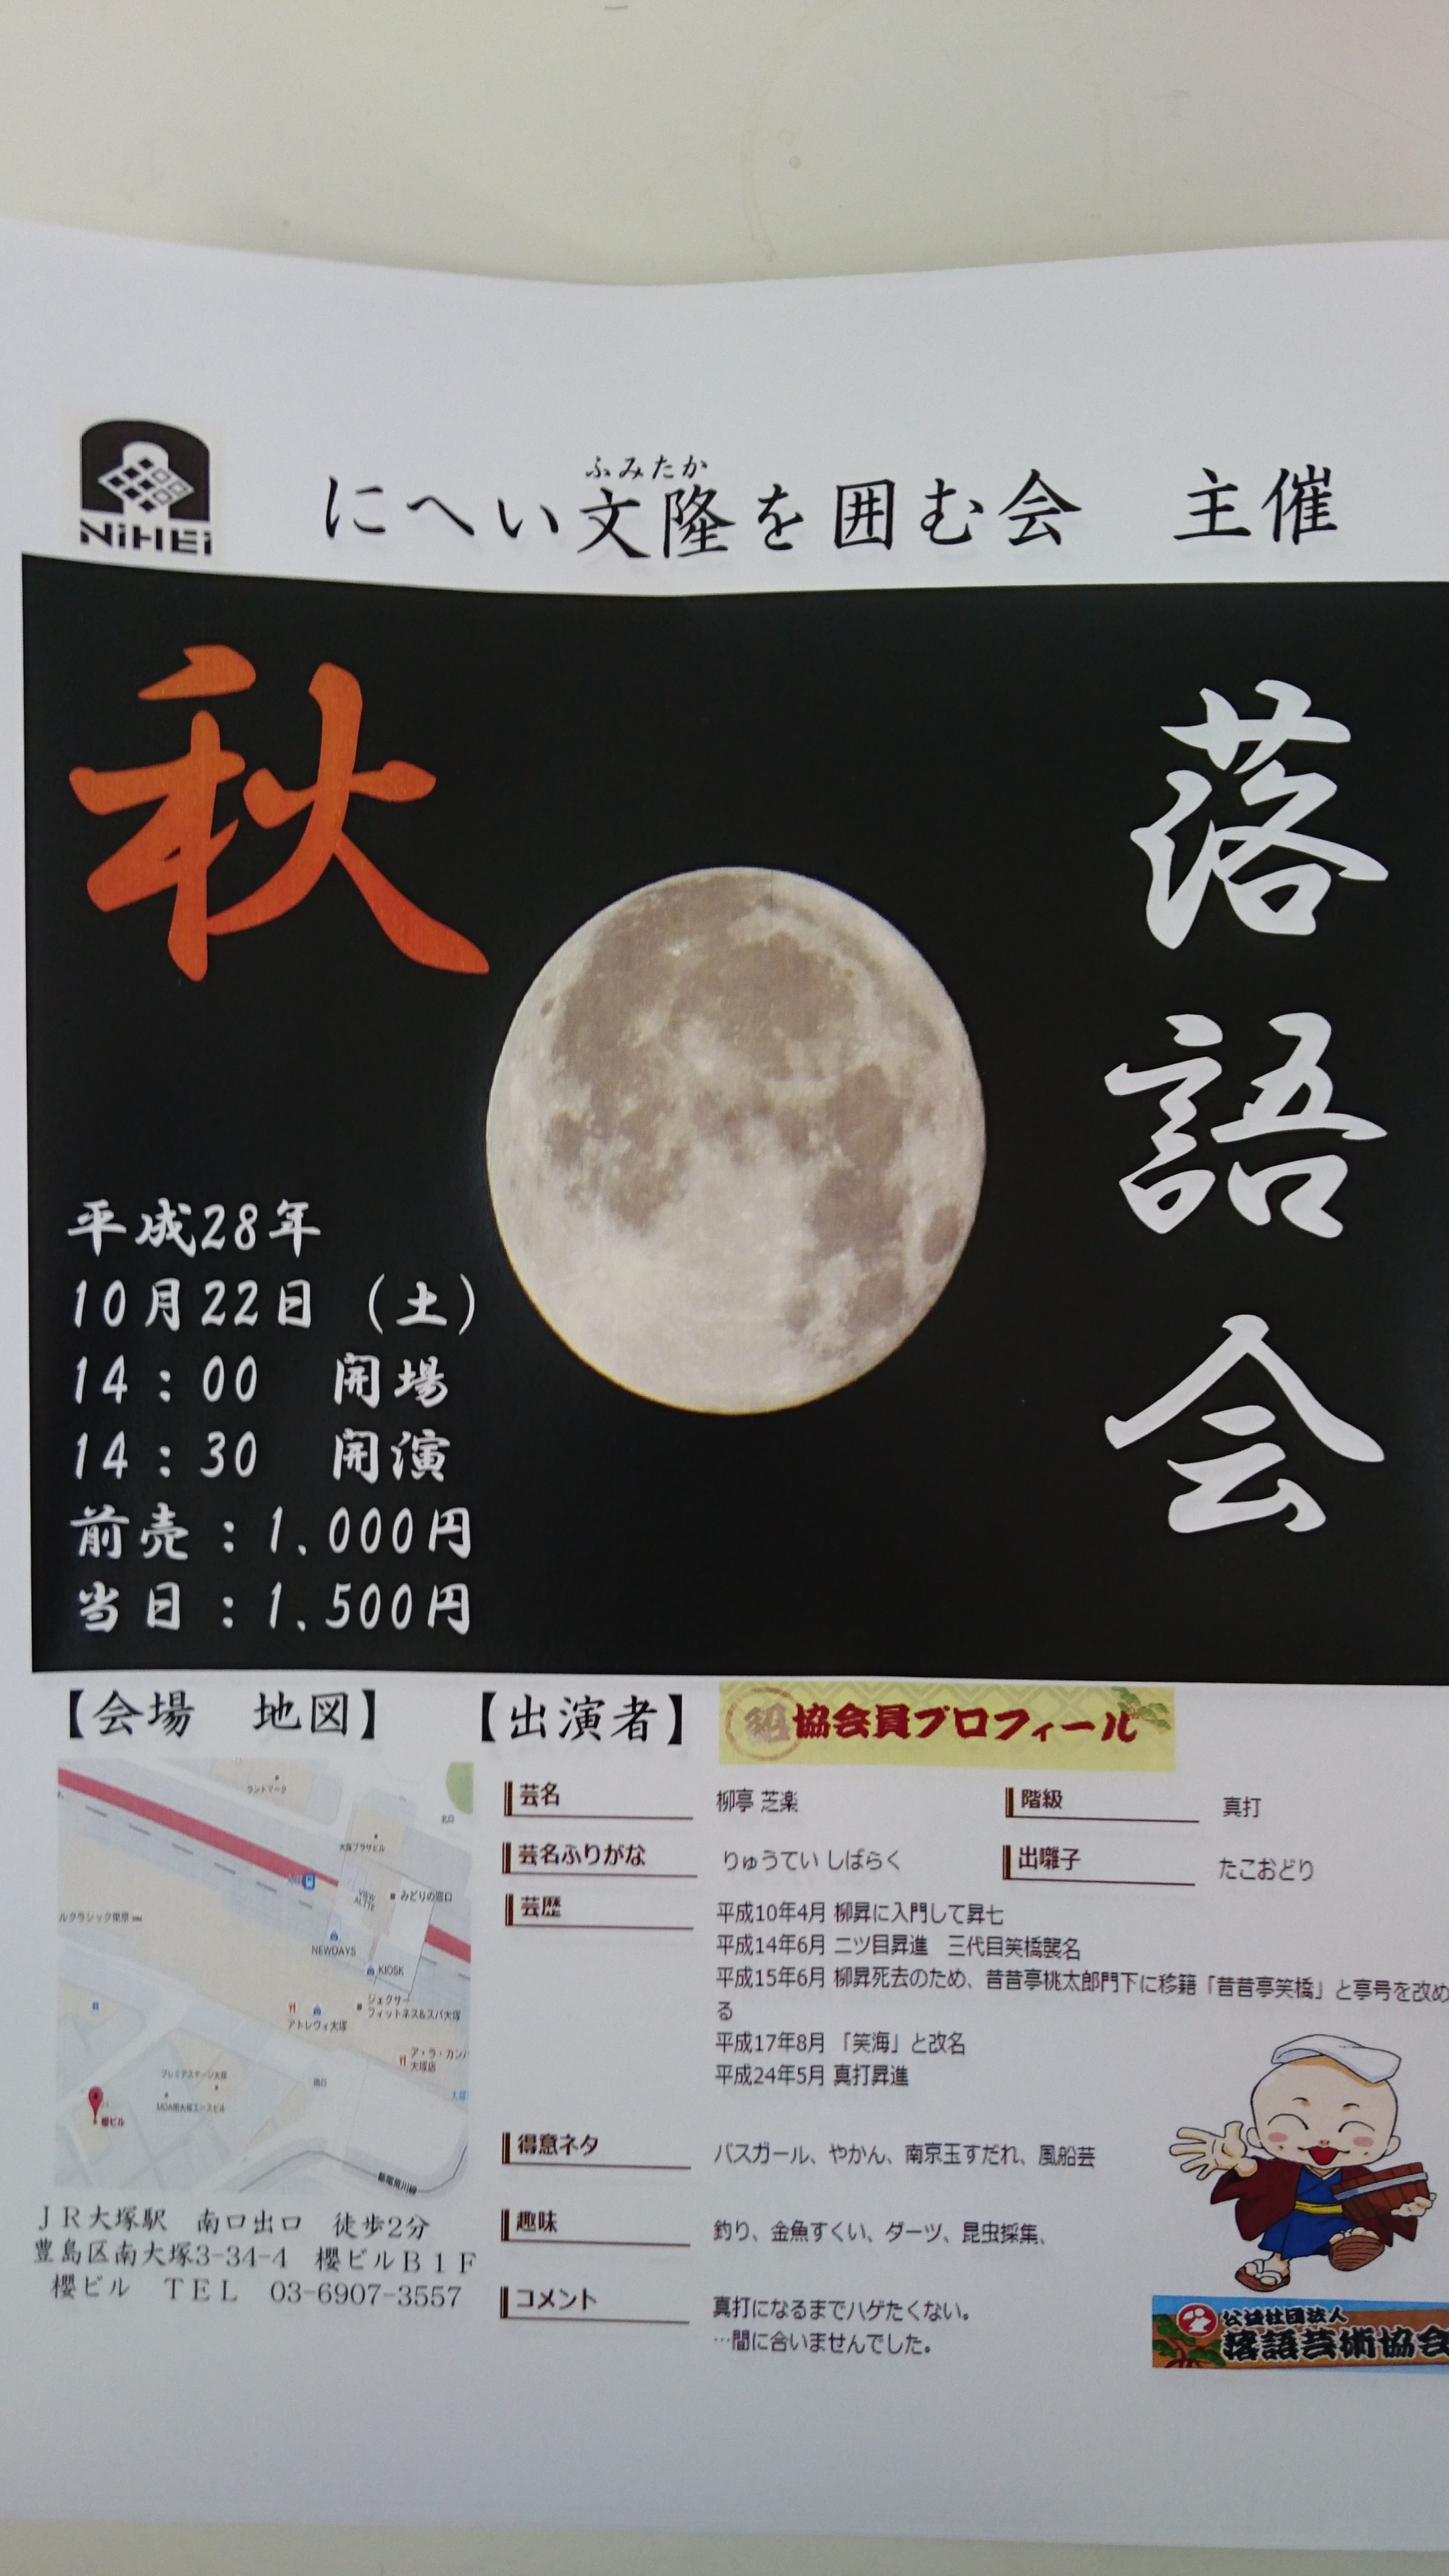 NiHEi
ふみたか
にへい文隆を囲む会　主催
秋
落語会
平成28年
10月22日（土）
14：00　開場
14：30　開演
前売：1、000円
当日：1、500円
【会場　地図】
ランドマーク
北口
大塚プラザビル
VIEW ALTTE
みどりの窓口
ルクラシック東京
NEWDAYS
KIOSK
ジェクサー
フィットネス&スパ大塚
アトレヴィ大塚
ア・ラ・カンパ
大塚店
大塚
プレミアステージ大塚
南口
MOA南大塚エースビル
櫻ビル
都電荒川線
ＪＲ大塚駅　南口出口　徒歩2分
豊島区南大塚3-34-4　櫻ビルＢ１Ｆ
櫻ビル　ＴＥＬ　03-6907-3557
【出演者】
協会員プロフィール
芸名　柳亭 芝楽
階級　真打
芸名ふりがな　りゅうてい しばらく
出囃子　たこおどり
芸歴　平成10年4月 柳昇に入門して昇七
平成14年6月 二ツ目昇進　三代目笑橋襲名
平成15年6月 柳昇死去のため、昔昔亭桃太郎門下に移籍「昔昔亭笑橋」と亭号を改め
る
平成17年8月 「笑海」と改名
平成24年5月 真打昇進
得意ネタ　バスガール、やかん、南京玉すだれ、風船芸
趣味　釣り、金魚すくい、ダーツ、昆虫採集、
コメント　真打になるまでハゲたくない。
…間に合いませんでした。
公益社団法人
落語芸術協会